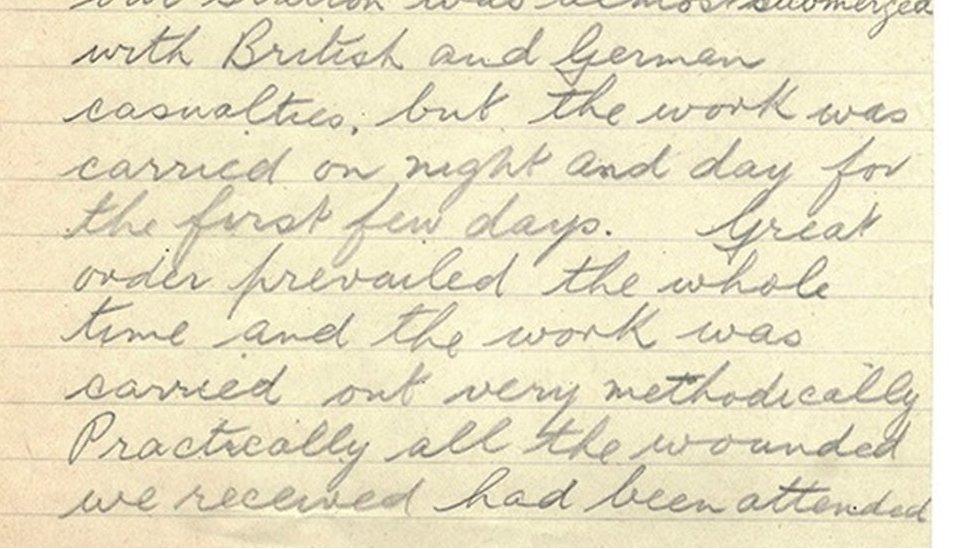 our station was almost submerged
with British and German
casualties, but the work was
carried on night and day for
the first few days. Great
order prevailed the whole
time and the work was
carried out very methodically
Practically all the wounded
we received had been attended